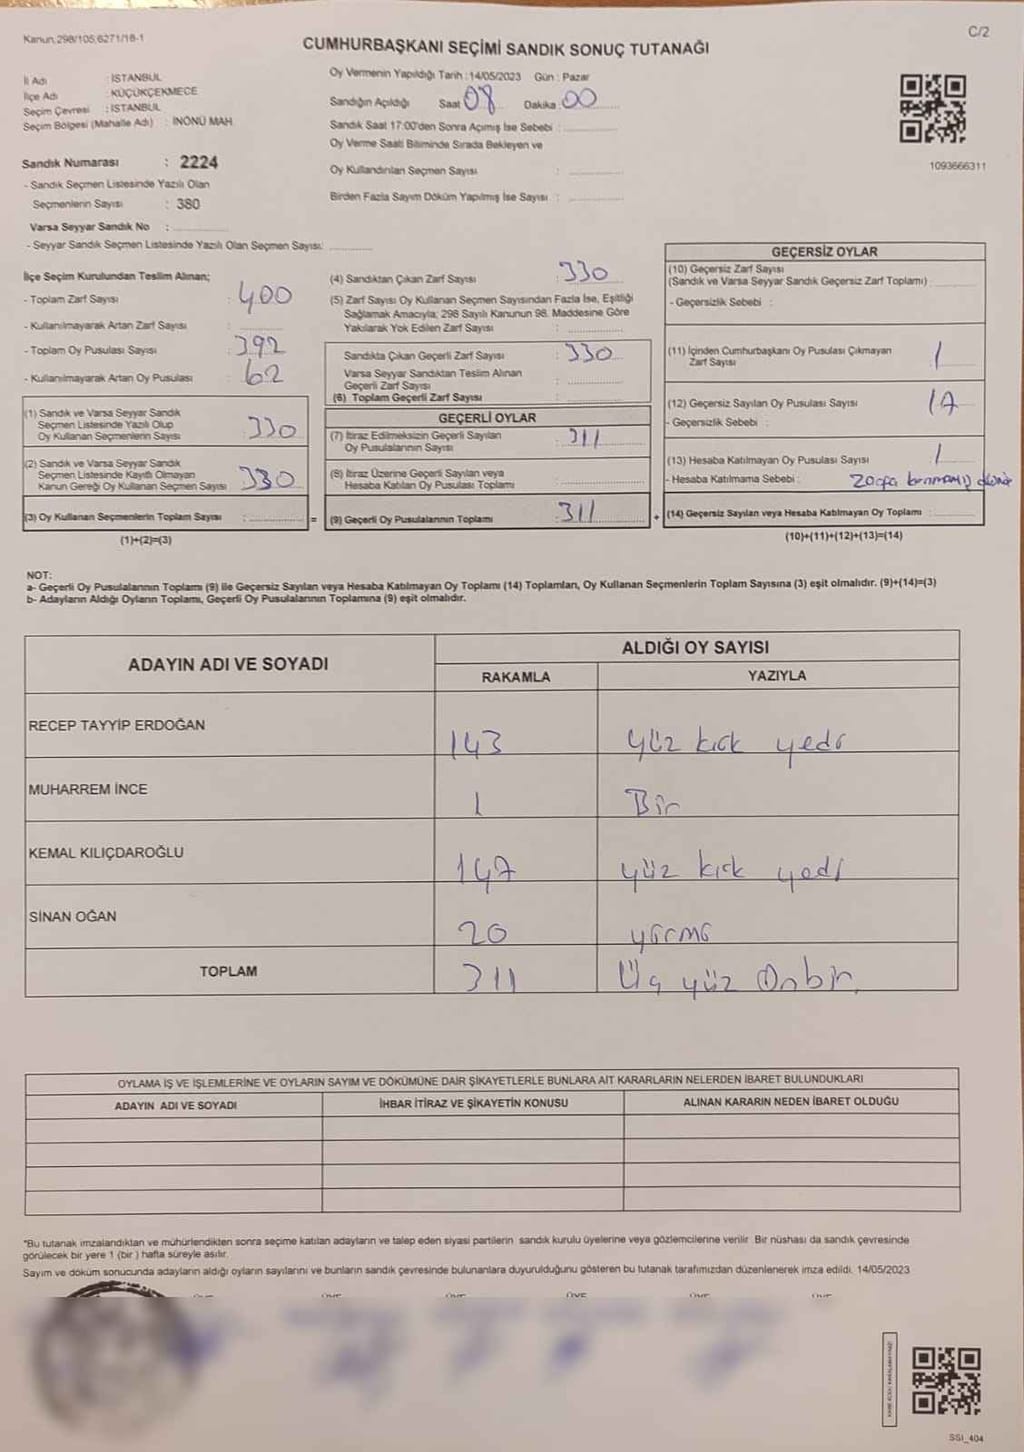 Kanun;298/105;6271/18-1
C/2
CUMHURBAŞKANI SEÇİMİ SANDIK SONUÇ TUTANAĞI
İl Adı : İSTANBUL
İlçe Adı : KÜÇÜKÇEKMECE
Seçim Çevresi : İSTANBUL
Seçim Bölgesi (Mahalle Adı) : İNÖNÜ MAH.
Oy Vermenin Yapıldığı Tarih : 14/05/2023 Gün : Pazar
Sandığın Açıldığı Saat 08 Dakika : 00
Sandık Saat 17:00'den Sonra Açımış İse Sebebi :
Oy Verme Saati Bitiminde Sırada Bekleyen ve
Oy Kullandırılan Seçmen Sayısı :
Birden Fazla Sayım Döküm Yapılmış İse Sayısı :
1093666311
Sandık Numarası : 2224
- Sandık Seçmen Listesinde Yazılı Olan
Seçmenlerin Sayısı : 380
Varsa Seyyar Sandık No :
- Seyyar Sandık Seçmen Listesinde Yazılı Olan Seçmen Sayısı:
İlçe Seçim Kurulundan Teslim Alınan;
- Toplam Zarf Sayısı : 400
- Kullanılmayarak Artan Zarf Sayısı :
- Toplam Oy Pusulası Sayısı : 392
- Kullanılmayarak Artan Oy Pusulası : 62
(1) Sandık ve Varsa Seyyar Sandık
Seçmen Listesinde Yazılı Olup
Oy Kullanan Seçmenlerin Sayısı : 330
(2) Sandık ve Varsa Seyyar Sandık
Seçmen Listesinde Kayıtlı Olmayan
Kanun Gereği Oy Kullanan Seçmen Sayısı 330
(3) Oy Kullanan Seçmenlerin Toplam Sayısı :
(1)+(2)=(3)
=
(4) Sandıktan Çıkan Zarf Sayısı : 330
(5) Zarf Sayısı Oy Kullanan Seçmen Sayısından Fazla İse, Eşitliği
Sağlamak Amacıyla; 298 Sayılı Kanunun 98. Maddesine Göre
Yakılarak Yok Edilen Zarf Sayısı :
Sandıkta Çıkan Geçerli Zarf Sayısı : 330
Varsa Seyyar Sandıktan Teslim Alınan
Geçerli Zarf Sayısı :
(6) Toplam Geçerli Zarf Sayısı :
GEÇERLİ OYLAR
(7) İtiraz Edilmeksizin Geçerli Sayılan
Oy Pusulalarının Sayısı : 311
(8) İtiraz Üzerine Geçerli Sayılan veya
Hesaba Katılan Oy Pusulası Toplamı :
(9) Geçerli Oy Pusulalarının Toplamı : 311
+
GEÇERSİZ OYLAR
(10) Geçersiz Zarf Sayısı
(Sandık ve Varsa Seyyar Sandık Geçersiz Zarf Toplamı) :
- Geçersizlik Sebebi :
(11) İçinden Cumhurbaşkanı Oy Pusulası Çıkmayan
Zarf Sayısı : 1
(12) Geçersiz Sayılan Oy Pusulası Sayısı : 17
- Geçersizlik Sebebi :
(13) Hesaba Katılmayan Oy Pusulası Sayısı : 1
- Hesaba Katılmama Sebebi :
(14) Geçersiz Sayılan veya Hesaba Katılmayan Oy Toplamı :
(10)+(11)+(12)+(13)=(14)
NOT:
a- Geçerli Oy Pusulalarının Toplamı (9) ile Geçersiz Sayılan veya Hesaba Katılmayan Oy Toplamı (14) Toplamları, Oy Kullanan Seçmenlerin Toplam Sayısına (3) eşit olmalıdır. (9)+(14)=(3)
b- Adayların Aldığı Oyların Toplamı, Geçerli Oy Pusulalarının Toplamına (9) eşit olmalıdır.
ADAYIN ADI VE SOYADI
ALDIĞI OY SAYISI
RAKAMLA YAZIYLA
RECEP TAYYİP ERDOĞAN 143 yüz kırk yedi
MUHARREM İNCE 1 Bir
KEMAL KILIÇDAROĞLU 147 yüz kırk yedi
SİNAN OĞAN 20 yirmi
TOPLAM 311 Üç yüz Onbir
OYLAMA İŞ VE İŞLEMLERİNE VE OYLARIN SAYIM VE DÖKÜMÜNE DAİR ŞİKAYETLERLE BUNLARA AİT KARARLARIN NELERDEN İBARET BULUNDUKLARI
ADAYIN ADI VE SOYADI İHBAR İTİRAZ VE ŞİKAYETİN KONUSU ALINAN KARARIN NEDEN İBARET OLDUĞU
*Bu tutanak imzalandıktan ve mühürlendikten sonra seçime katılan adayların ve talep eden siyasi partilerin sandık kurulu üyelerine veya gözlemcilerine verilir. Bir nüshası da sandık çevresinde
görülecek bir yere 1 (bir ) hafta süreyle asılır.
Sayım ve döküm sonucunda adayların aldığı oyların sayılarını ve bunların sandık çevresinde bulunanlara duyurulduğunu gösteren bu tutanak tarafımızdan düzenlenerek imza edildi. 14/05/2023
SSI_404